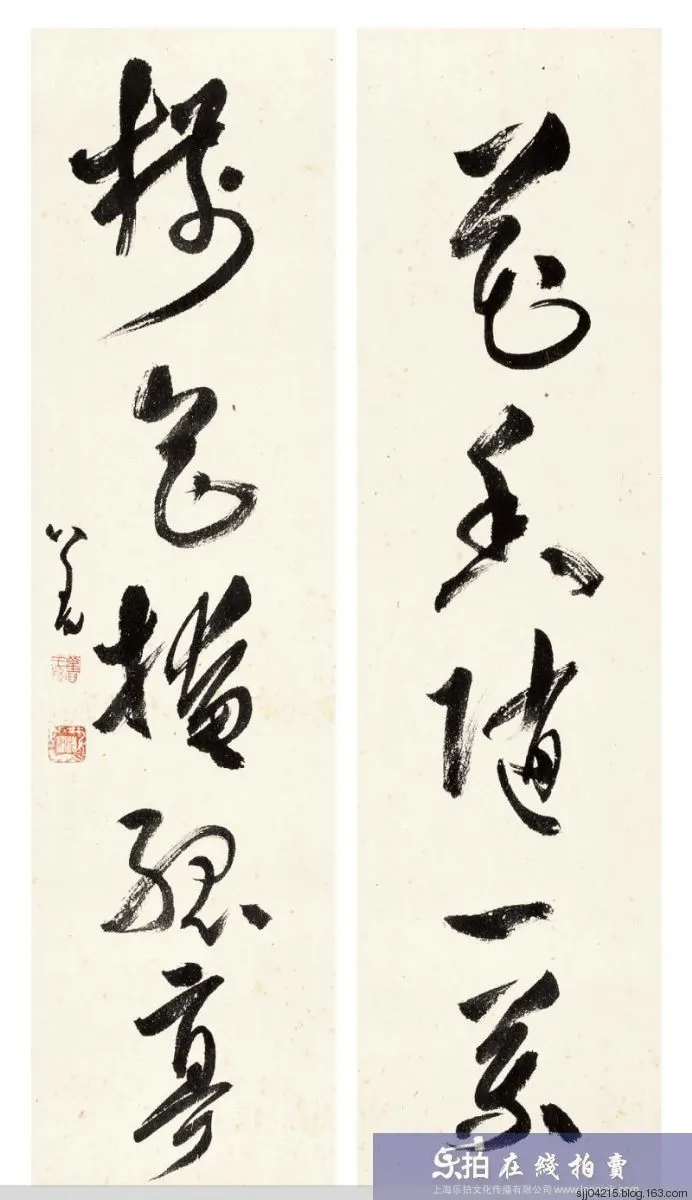 花香隨一葉
樹色孤亭
乐拍在綫拍賣
上海乐拍文化传播有限公司
sjj04215.blog.163.com